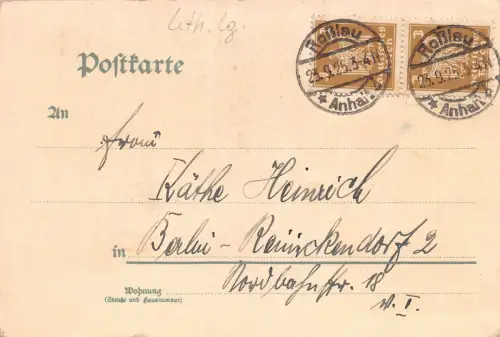 Lith. Lg.
Postkarte
Roßlau
23.9.25.3-4N
* Anhalt
Roßlau
23.9.25.3-4N
* Anhalt
An
Frau
Käthe Heinrich
in Berlin-Reinickendorf 2
Nordbahnstr. 18
v. I.
Wohnung
(Straße und Hausnummer)